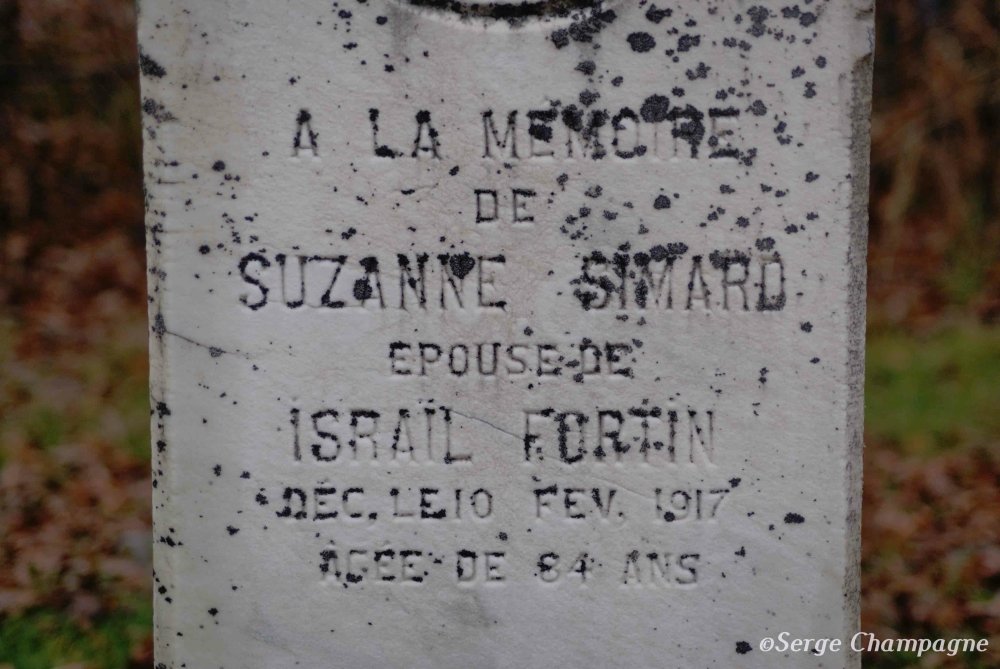 A LA MEMOIRE
DE
SUZANNE SIMARD
EPOUSE DE
ISRAÏL FORTIN
DÉC. LE 10 FEV. 1917
AGÉE DE 84 ANS
©Serge Champagne